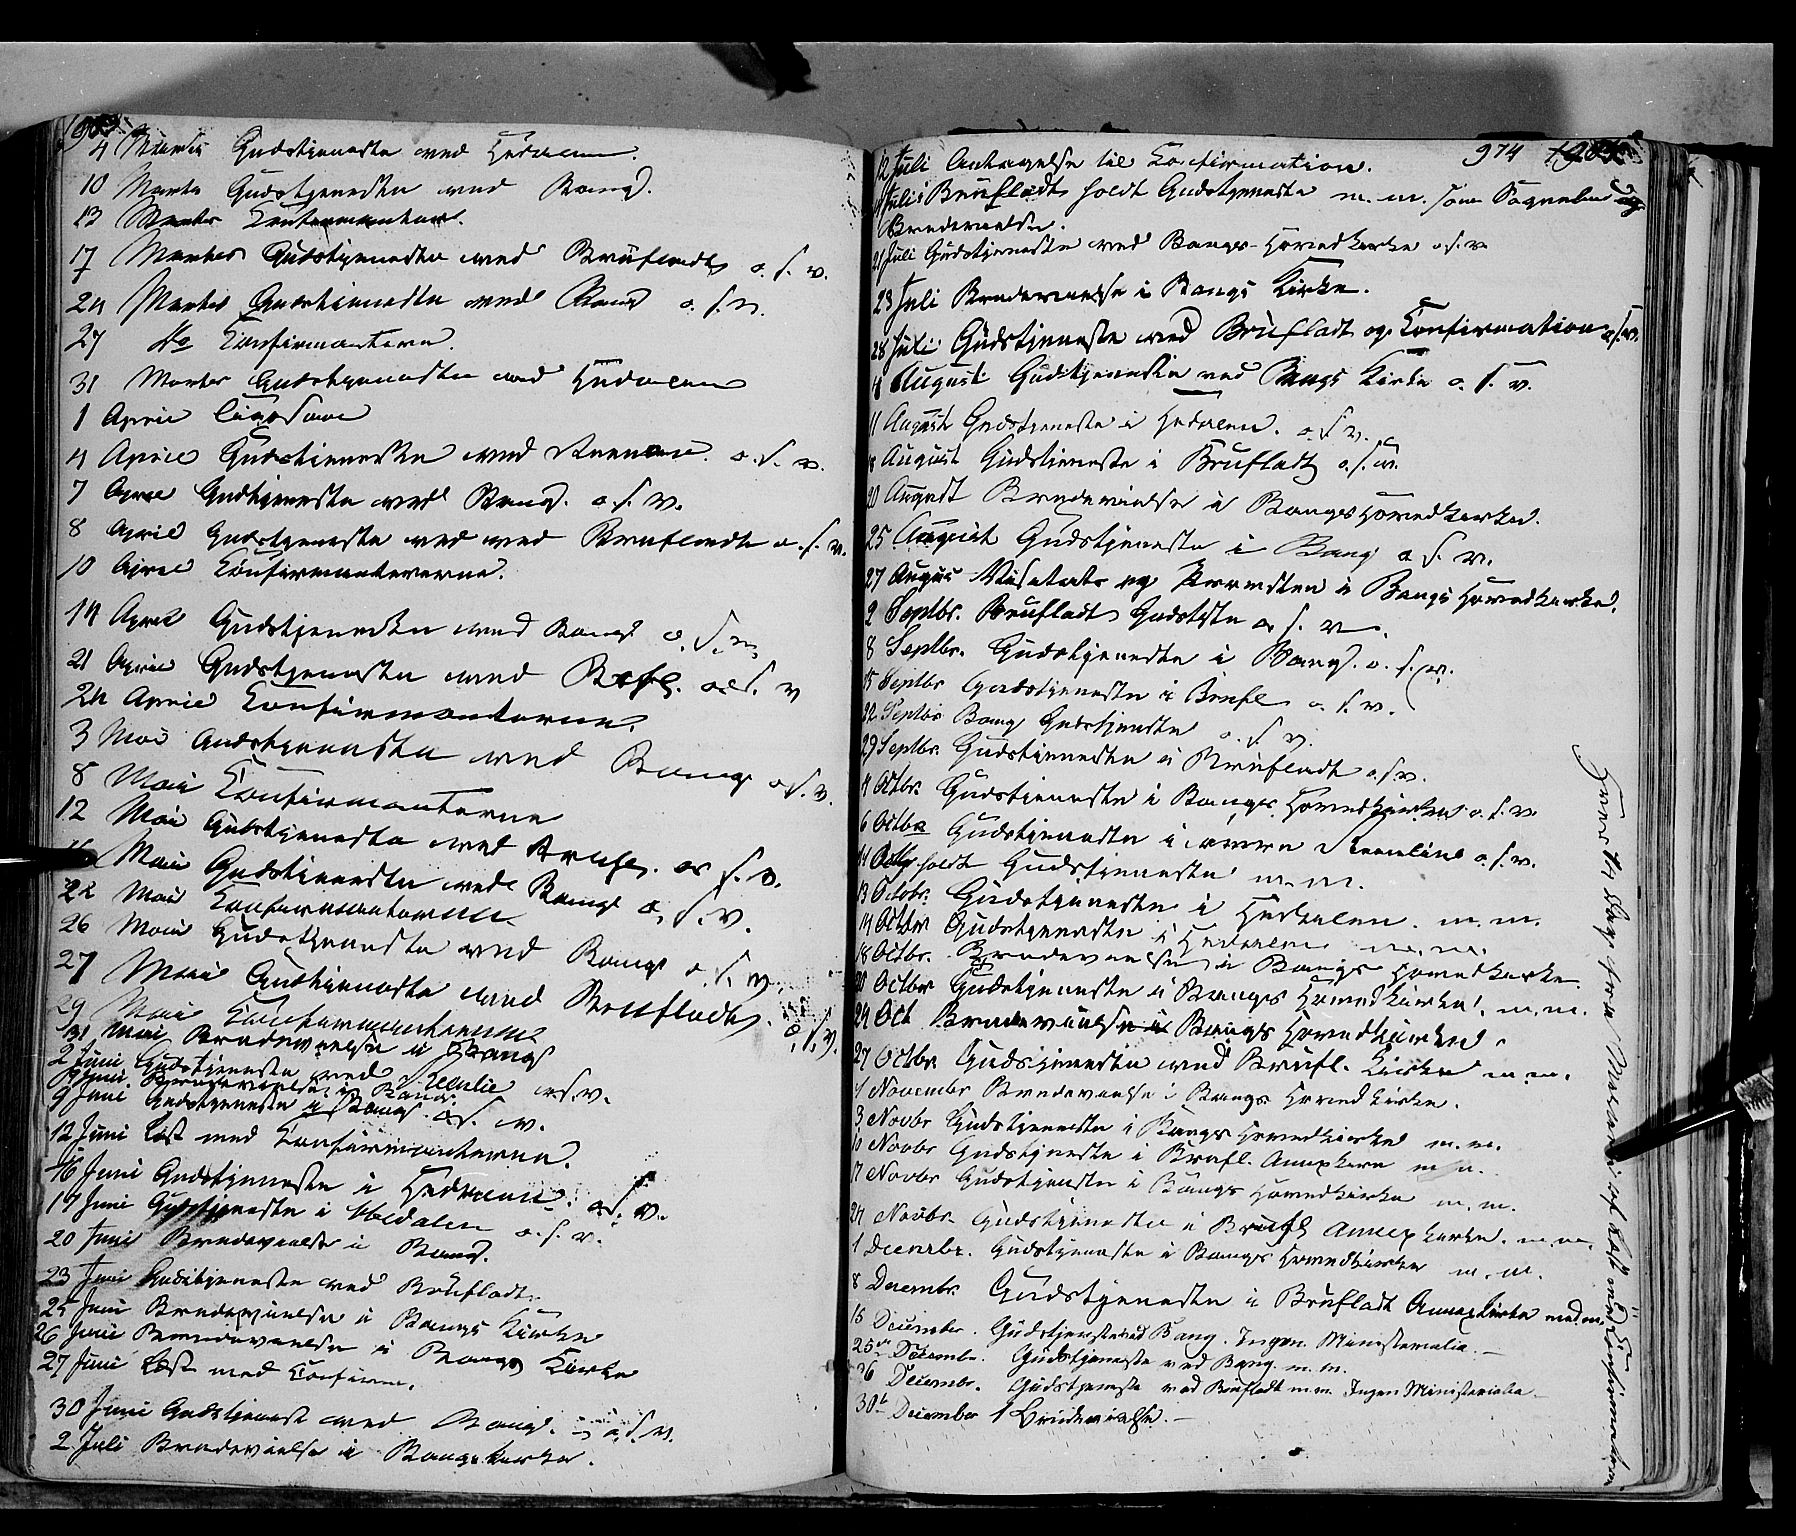 4 Martii Gudstjeneste ved Hedalen.
10 Marts Gudstjeneste ved Bang.
13 Marts Confirmanterne.
17 Martes Gudstjeneste ved Brufladt o. s. v.
24 Martes Gudstjeneste ved Bang o. s. v.
27 do Confirmanterne.
31 Martes Gudstjeneste ved Hedalen
1 April
4 April Gudstjeneste ved o. s. v.
7 April Gudtjeneste ved Bang. o. s. v.
8 April Gudstjeneste ved ved Brufladt o. s. v.
10 April Confirmanterne.
14 April Gudstjeneste ved Bang o. s. v.
21 April Gudstjeneste ved Brfl. o. s. v
24 April Confirmanterne.
3 Mai Gudstjeneste ved Bang o. s. v.
8 Mai Confirmanterne
12 Mai Gudstjeneste ved Brufl. o. s. v.
Mai Gudstjeneste ved Bang o. s. v.
22 Mai Confirmanterne
26 Mai Gudstjeneste ved Bang o. s. v.
27 Mai Gudtjeneste ved Brufladt o. s. v.
29 Mai Confirmanterne
31 Mai Brudevielse i Bang
2 Juni Gudstjeneste ved o. s. v.
Juni Brudevielse i Bang.
9 Juni Gudstjeneste i Bang o. s. v.
12 Juni Læst med Confirmanterne.
16 Juni Gudstjeneste i Hedalen. o. s. v.
17 Juni Gudstjeneste i Hedalen o. s. v.
20 Juni Brudevielse i Bang.
23 Juni Gudstjeneste ved Brufladt.
25 Juni Brudevielse i Bangs Kirke
26 Juni Brudevielse i Bangs Kirke
27 Juni Læst med Confirm.
30 Juni Gudstjenest ved Bang. o. s. v.
2 Juli Brudevielse i Bangs Kirke.
974
12 Juli Antagelse til Confirmation.
Juli Brufladt holdt Gudstjeneste m. m. som Sognebud og
Brudevielse.
21 Juli Gudstjeneste ved Bangs Hovedkirke o. s. v
23 Juli Brudevielse i Bangs Kirke.
28 Juli Gudstjeneste ved Brufladt og Confirmation o. s. v.
4 August Gudstjeneste ved Bangs Kirke o. s. v.
11 August Gudstjeneste i Hedalen. o. s. v.
18 August Gudstjeneste i Brufladt o. s. v.
20 August Brudevielse i Bangs Hovedkirke.
25 August Gudstjeneste i Bang o. s. v.
27 Augus Visitats og i Bangs Hovedkirke.
2 Septbr. Brufladt Gudstste o. s. v.
8 Septbr. Gudstjeneste i Bang. o. s. v.
15 Septbr Gudstjeneste i Brufl o. s. v.
22 Septbr Bang Gudstjeneste o. s. v.
29 Septbr. Gudstjeneste i Brufladt o. s. v.
4 Octbr. Gudstjeneste i Bangs Hovedkirke o. s. v.
6 Octbr Gudstjeneste i o. s. v.
holdt Gudstjeneste m. m.
13 Octobr. Gudstjeneste i Hedalen. m. m.
14 Octbr Gudstjeneste i Hedalen m. m.
18 Octbr. Brudevielse i Bangs Hovedkirke
20 Octber Gudstjeneste i Bangs Hovedkirke. m. m.
24 Oct Brudevielse i Bangs Hovedkirke.
27 Octbr Gudstjeneste ved Brufl. Kirke m. m.
1 Novembr Brudevielse i Bangs Hovedkirke.
3 Novbr Gudstjeneste i Bangs Hovedkirke m. m.
10 Novbr Gudstjeneste i Brufl. Annexkirke m. m.
17 Novbr Gudstjeneste i Bangs Hovedkirke m. m.
24 Novbr. Gudstjeneste i Brufl Annexkirke. m. m.
1 Decembr. Gudstjeneste i Bangs Hovedkirke m. m.
8 Decembr. Gudstjeneste i Brufladt Annexkirke med m.
15 December. Gudstjeneste ved Bang. Ingen Ministerialia.
25de Decembr. Gudstjeneste ved Bang. m. m.
26 Decembr. Gudstjeneste ved Brufladt m. m. Ingen Ministerialia
30te December 1 Brudevielse.
Hver 14 Dag fra læst med Confirmanterne